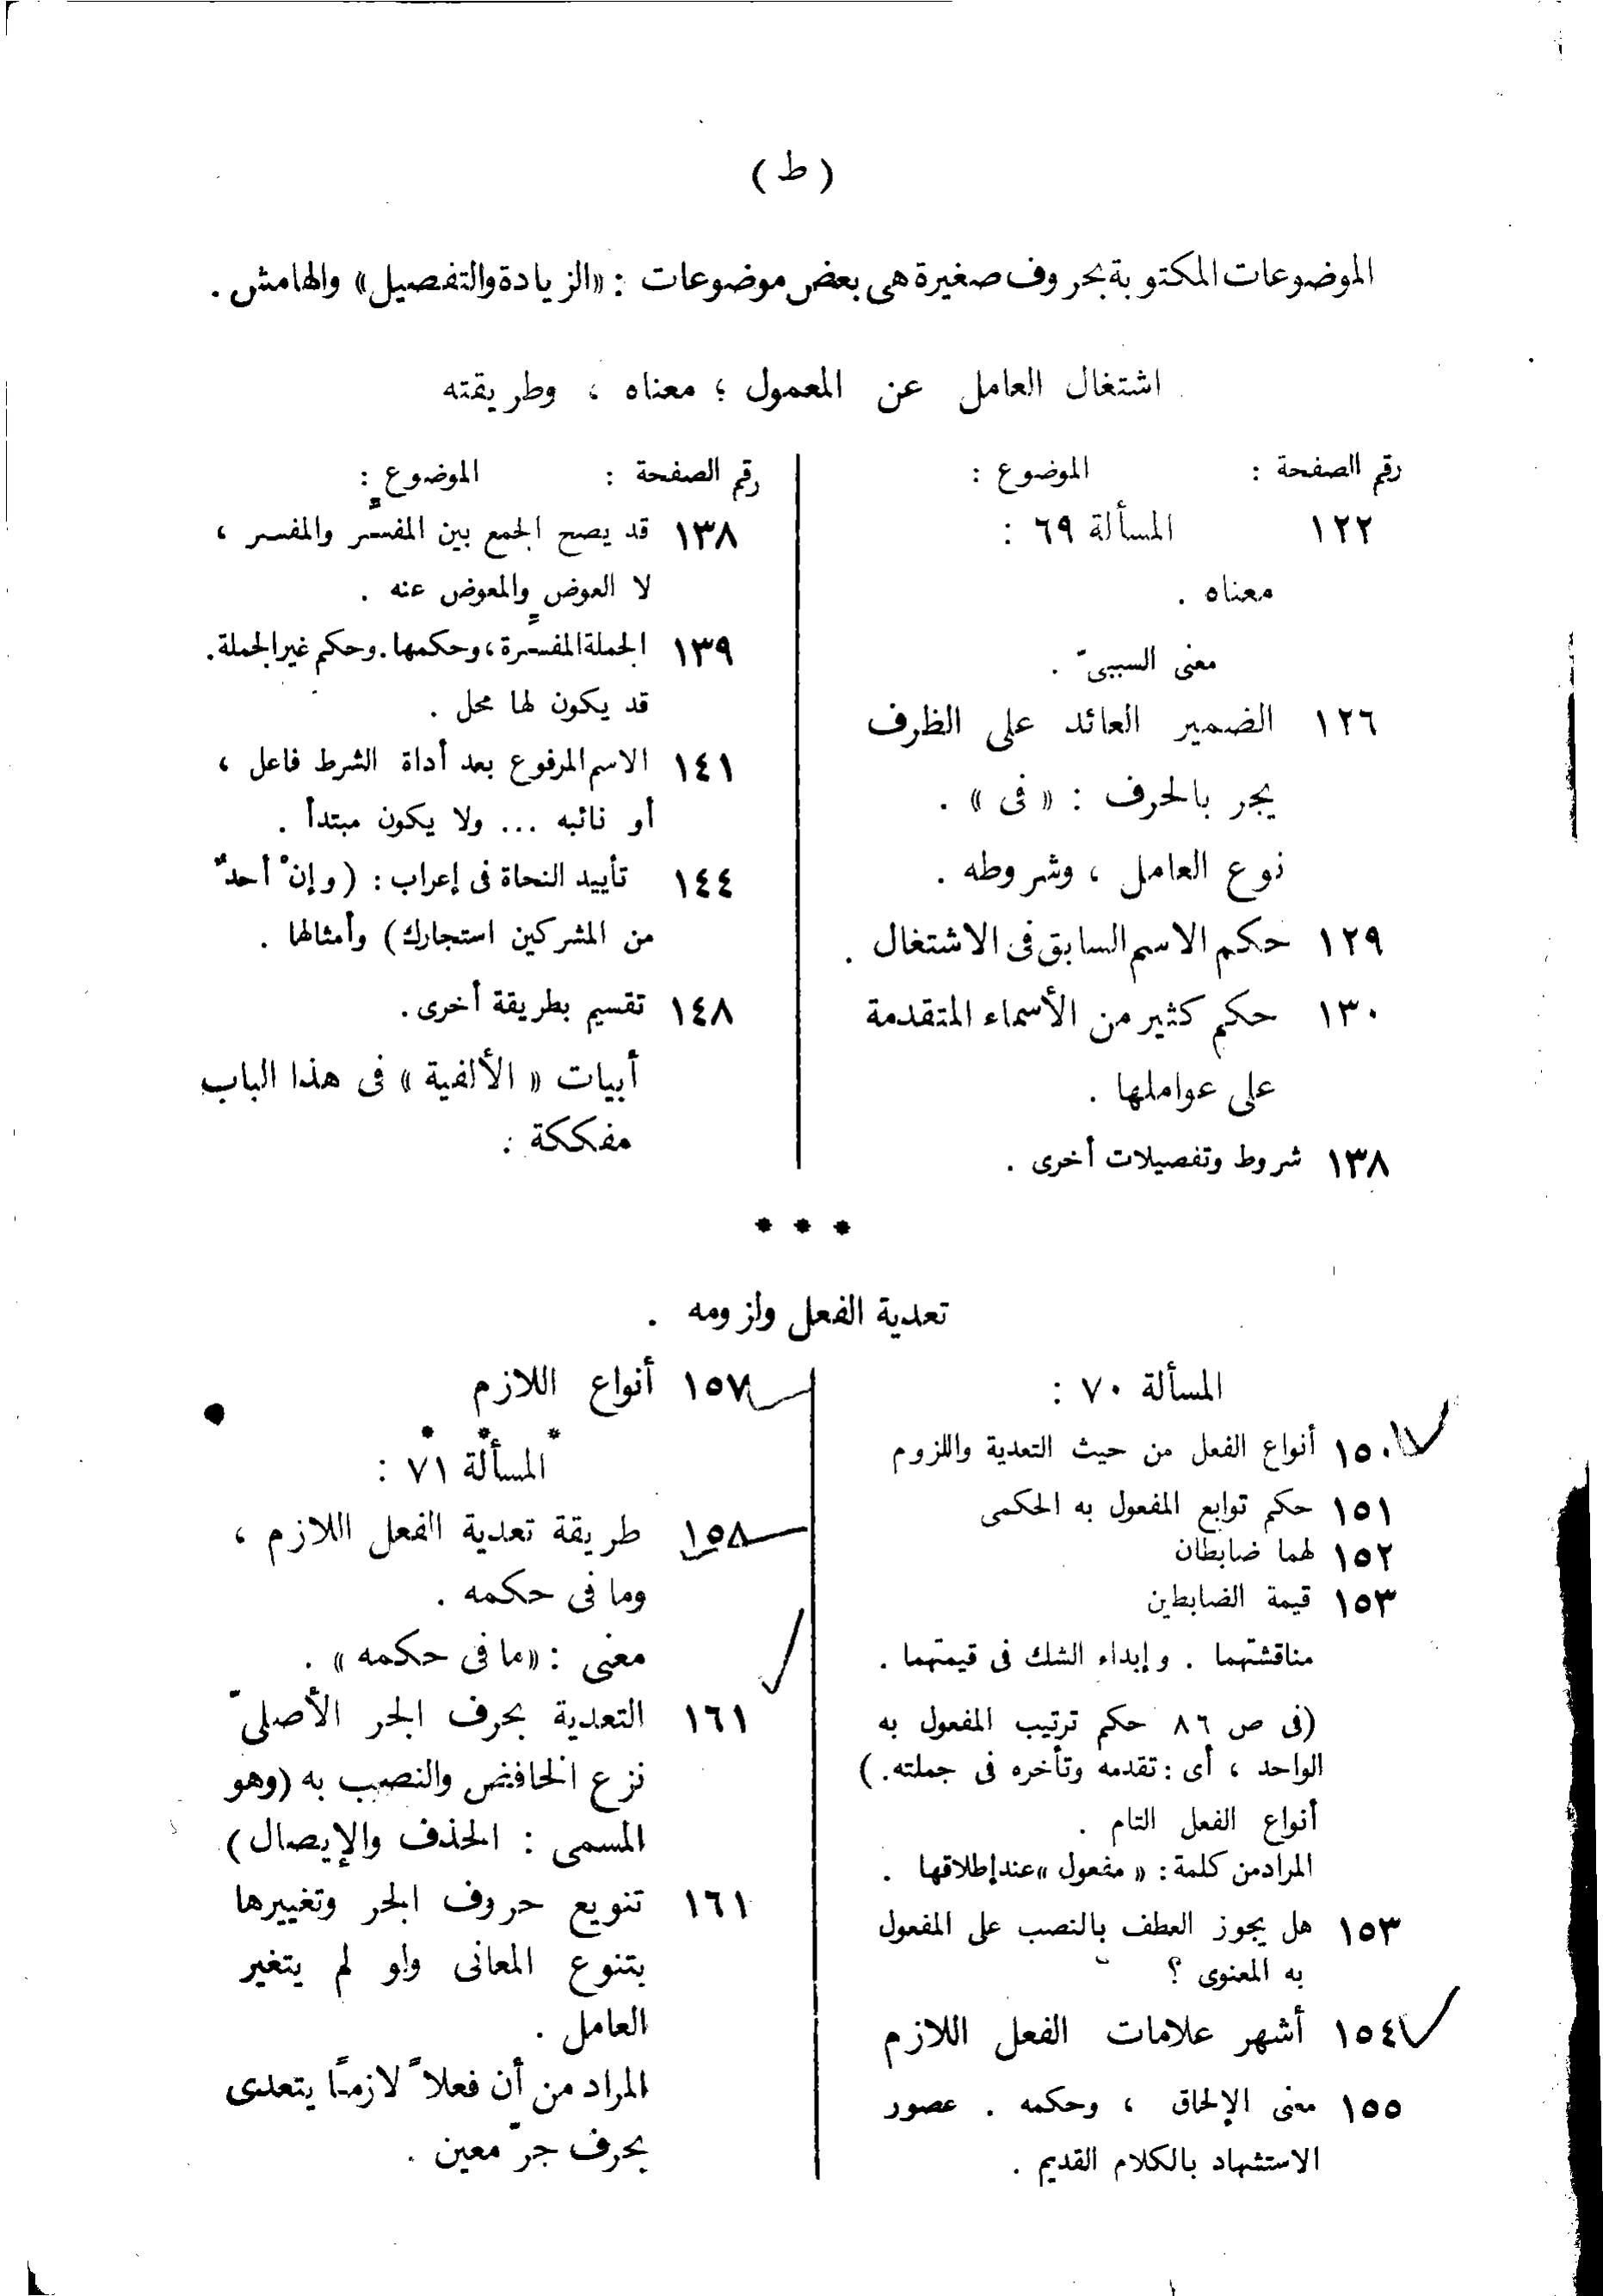 ( ط )
الموضوعات المكتوبة بحروف صغيرة هى بعض موضوعات : «الزيادة والتفصيل» والهامش .
اشتغال العامل عن المعمول ؛ معناه ، وطريقته
رقم الصفحة : الموضوع :
١٢٢ المسألة ٦٩ :
معناه .
معنى السببىّ .
١٢٦ الضمير العائد على الظرف
يجر بالحرف : « فى » .
نوع العامل ، وشروطه .
١٢٩ حكم الاسم السابق فى الاشتغال .
١٣٠ حكم كثير من الأسماء المتقدمة
على عواملها .
١٣٨ شروط وتفصيلات أخرى .
رقم الصفحة : الموضوع :
١٣٨ قد يصح الجمع بين المفسِّر والمفسر ،
لا العوض والمعوض عنه .
١٣٩ الجملة المفسِّرة ، وحكمها . وحكم غير الجملة .
قد يكون لها محل .
١٤١ الاسم المرفوع بعد أداة الشرط فاعل ،
أو نائبه ... ولا يكون مبتدأ .
١٤٤ تأييد النحاة فى إعراب : ( وإنْ أحدٌ
من المشركين استجارك ) وأمثالها .
١٤٨ تقسيم بطريقة أخرى .
أبيات « الألفية » فى هذا الباب
مفككة .
* * *
تعدية الفعل ولزومه .
المسألة ٧٠ :
١٥٠ أنواع الفعل من حيث التعدية واللزوم
١٥١ حكم توابع المفعول به الحكمى
١٥٢ لهما ضابطان
١٥٣ قيمة الضابطين
مناقشتهما . وإبداء الشك فى قيمتهما .
(فى ص ٨٦ حكم ترتيب المفعول به
الواحد ، أى : تقدمه وتأخره فى جملته .)
أنواع الفعل التام .
المراد من كلمة : « مفعول » عند إطلاقها .
١٥٣ هل يجوز العطف بالنصب على المفعول
به المعنوى ؟
١٥٤ أشهر علامات الفعل اللازم
١٥٥ معنى الإلحاق ، وحكمه . عصور
الاستشهاد بالكلام القديم .
١٥٧ أنواع اللازم
* * *
المسألة ٧١ :
١٥٨ طريقة تعدية الفعل اللازم ،
وما فى حكمه .
معنى : «ما فى حكمه» .
١٦١ التعدية بحرف الجر الأصلىّ
نزع الخافض والنصب به (وهو
المسمى : الحذف والإيصال)
١٦١ تنويع حروف الجر وتغييرها
بتنوع المعانى ولو لم يتغير
العامل .
المراد من أن فعلاً لازمًا يتعدى
بحرف جرّ معين .